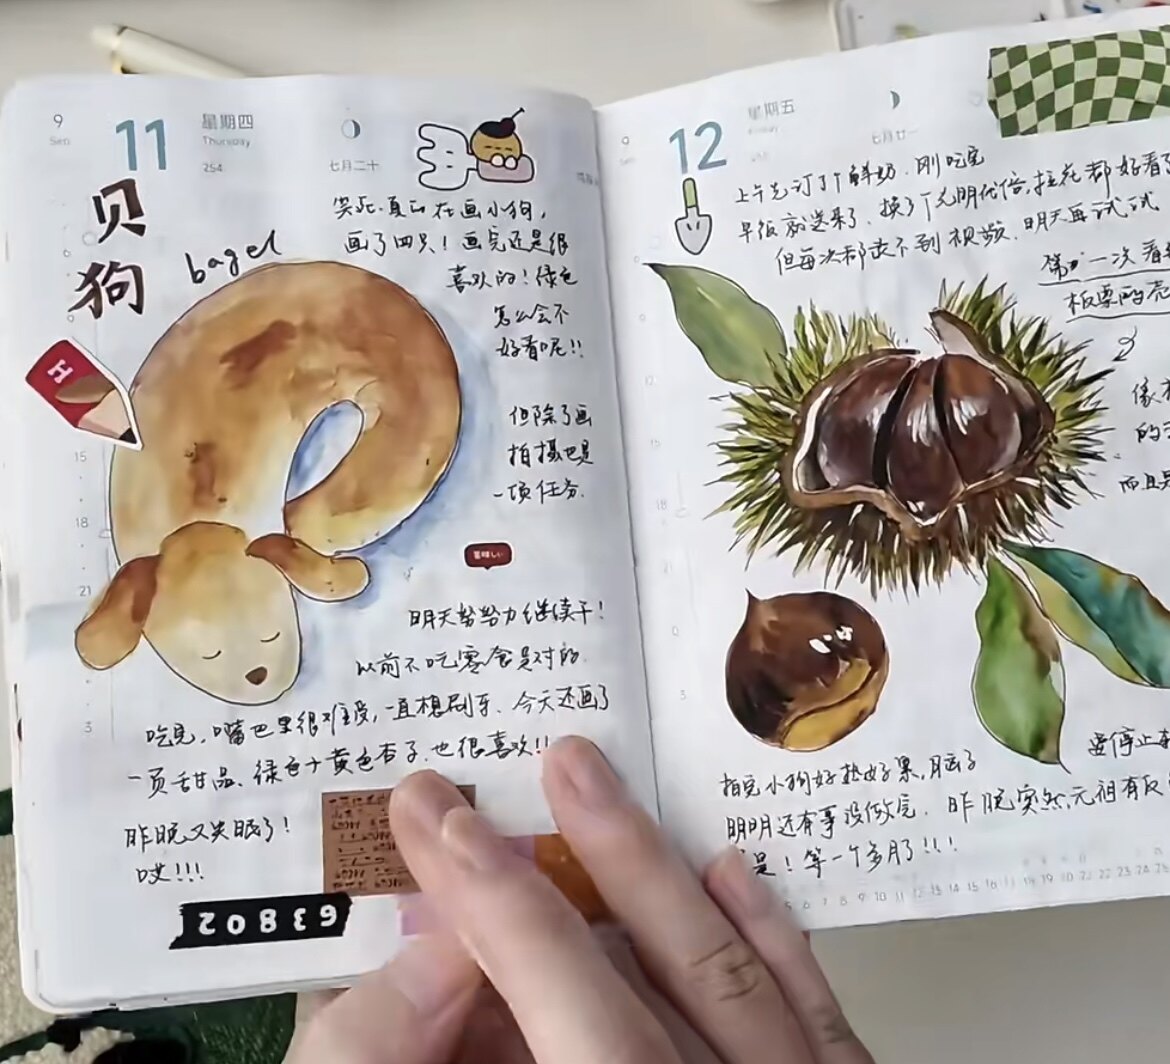 9
Sen
11
星期四
Thursday
254
七月二十
贝
狗
bagel
笑死.真的在画小狗,
画了四只!画完还是很
喜欢的!绿色
怎么会不
好看呢!!
但除了画
拍摄也是
一项任务.
H
15
18
21
3
美味しい
明天努努力继续干!
以前不吃零食是对的.
吃完,嘴巴里很难受,一直想刷牙、今天还画了
一页甜品、绿色+黄色杏子.也很喜欢!!
昨晚又失眠了!
哎!!!
63802
9
12
星期五
Friday
七月廿一
上午先订了个鲜奶.刚吃完
早饭就送来了.换了个光明优倍,拉花都好看了
但每次都拍不到视频.明天再试试
第一次看
板栗的壳
像
的
而且是
9
12
15
18
21
0
3
要停止
拍完小狗好热好累,
明明还有事没做完.昨晚突然元祖有
是!等一个多月了!!!
5 6 7 8 9 10 11 12 13 14 15 16 17 18 19 20 21 22 23 24 25 26